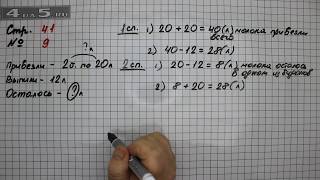 4 из 5 .RU
Стр. 41
№ 9
?л
Привезли - 2б. по 20л
Выпили - 12л
Осталось - ? л
1 сп. 1) 20 + 20 = 40 (л) молока привезли всего
2) 40 - 12 = 28 (л)
2 сп. 1) 20 - 12 = 8 (л) молока осталось
в одном из бидонов
2) 8 + 20 = 28 (л)